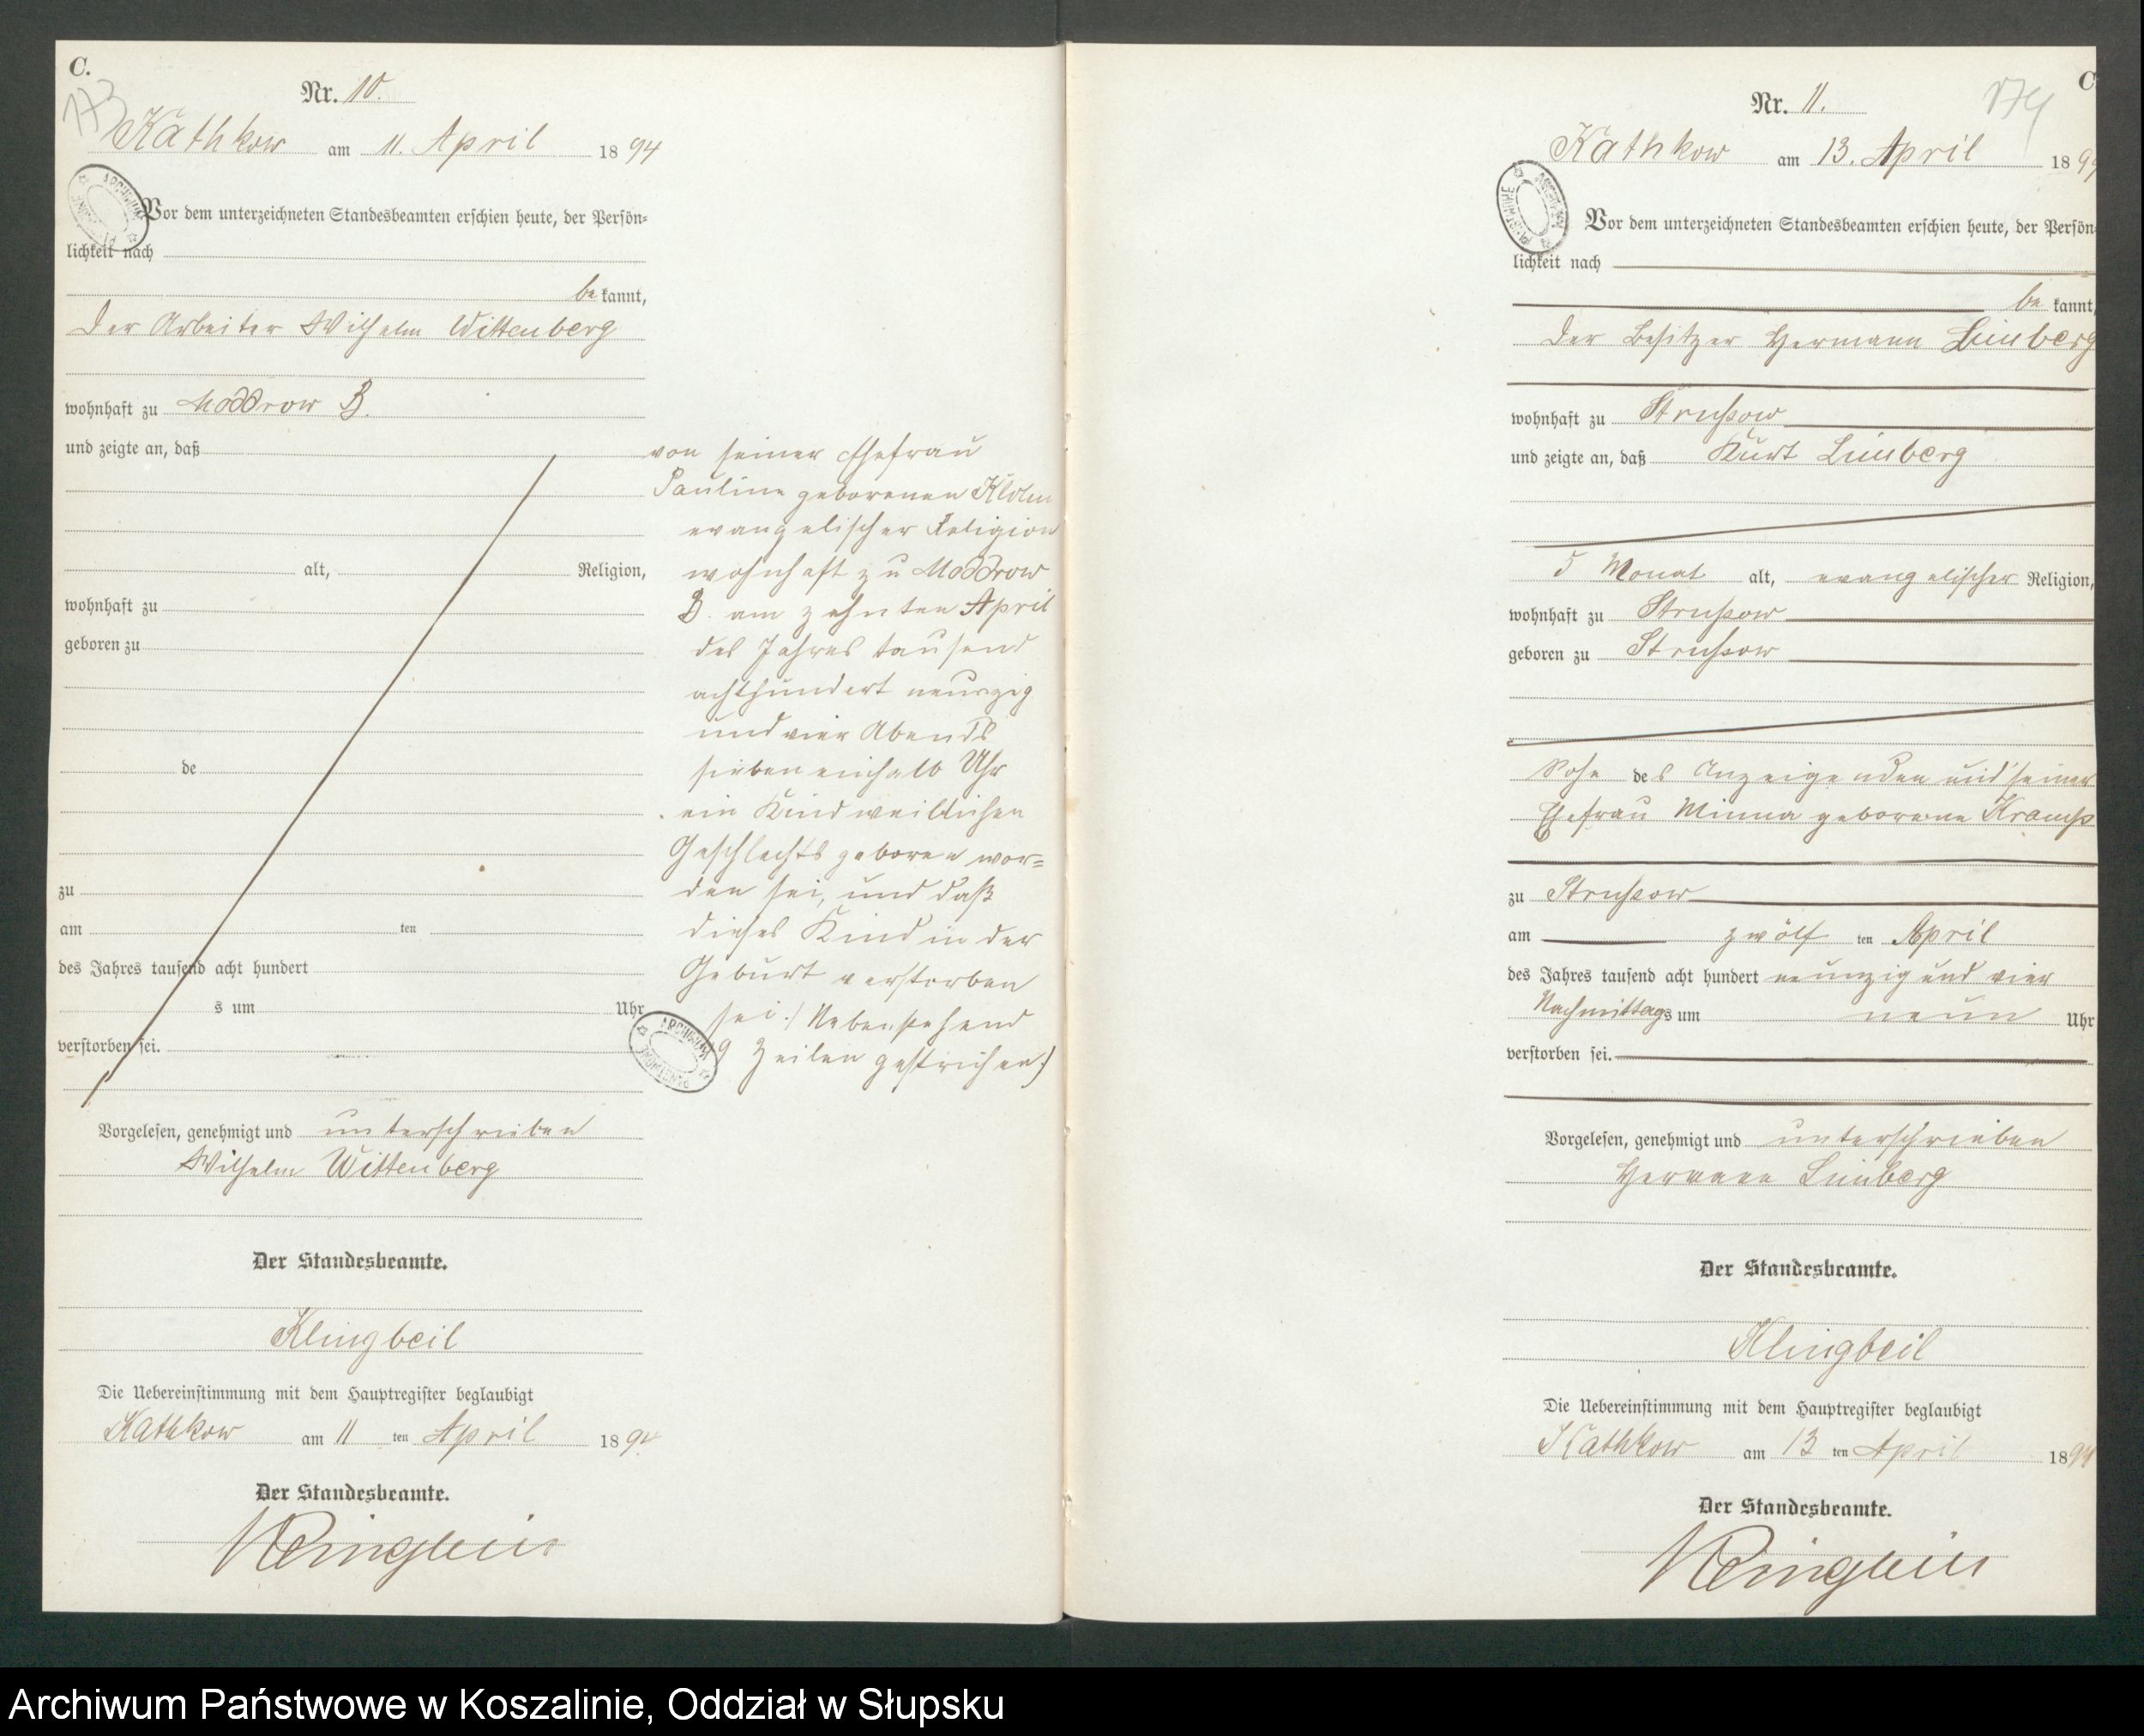 C.
173
Nr. 10.
Kathkow am 11. April 18 94
Vor dem unterzeichneten Standesbeamten erschien heute, der Persön-
lichkeit nach
bekannt,
der Arbeiter Wilhelm Wittenberg
wohnhaft zu Moddrow B.
und zeigte an, daß
von seiner Ehefrau
Pauline geborenen
evangelischer Religion
alt, Religion,
wohnhaft zu Moddrow
wohnhaft zu
B. am zehnten April
geboren zu
des Jahres tausend
achthundert neunzig
und vier Abends
sieben einhalb Uhr
de
ein Kind weiblichen
Geschlechts geboren wor=
den sei, und daß
zu
dieses Kind in der
am ten
Geburt verstorben
des Jahres tausend acht hundert
sei. / Nebenstehend
s um Uhr
9 Zeilen gestrichen /
verstorben sei.
Vorgelesen, genehmigt und unterschrieben
Wilhelm Wittenberg
Der Standesbeamte.
Klingbeil
Die Uebereinstimmung mit dem Hauptregister beglaubigt
Kathkow am 11 ten April 18 94
Der Standesbeamte.
Klingbeil
C
174
Nr. 11.
Kathkow am 13. April 18 94
Vor dem unterzeichneten Standesbeamten erschien heute, der Persön-
lichkeit nach
bekannt,
der Besitzer Hermann Limberg
wohnhaft zu Strussow
und zeigte an, daß Kurt Limberg
5 Monat alt, evangelischer Religion,
wohnhaft zu Strussow
geboren zu Strussow
Sohn des Anzeigenden und seiner
Ehefrau Minna geborene
zu Strussow
am zwölf ten April
des Jahres tausend acht hundert neunzig und vier
Nachmittags um neun Uhr
verstorben sei.
Vorgelesen, genehmigt und unterschrieben
Hermann Limberg
Der Standesbeamte.
Klingbeil
Die Uebereinstimmung mit dem Hauptregister beglaubigt
Kathkow am 13 ten April 1894
Der Standesbeamte.
Klingbeil
Archiwum Państwowe w Koszalinie, Oddział w Słupsku